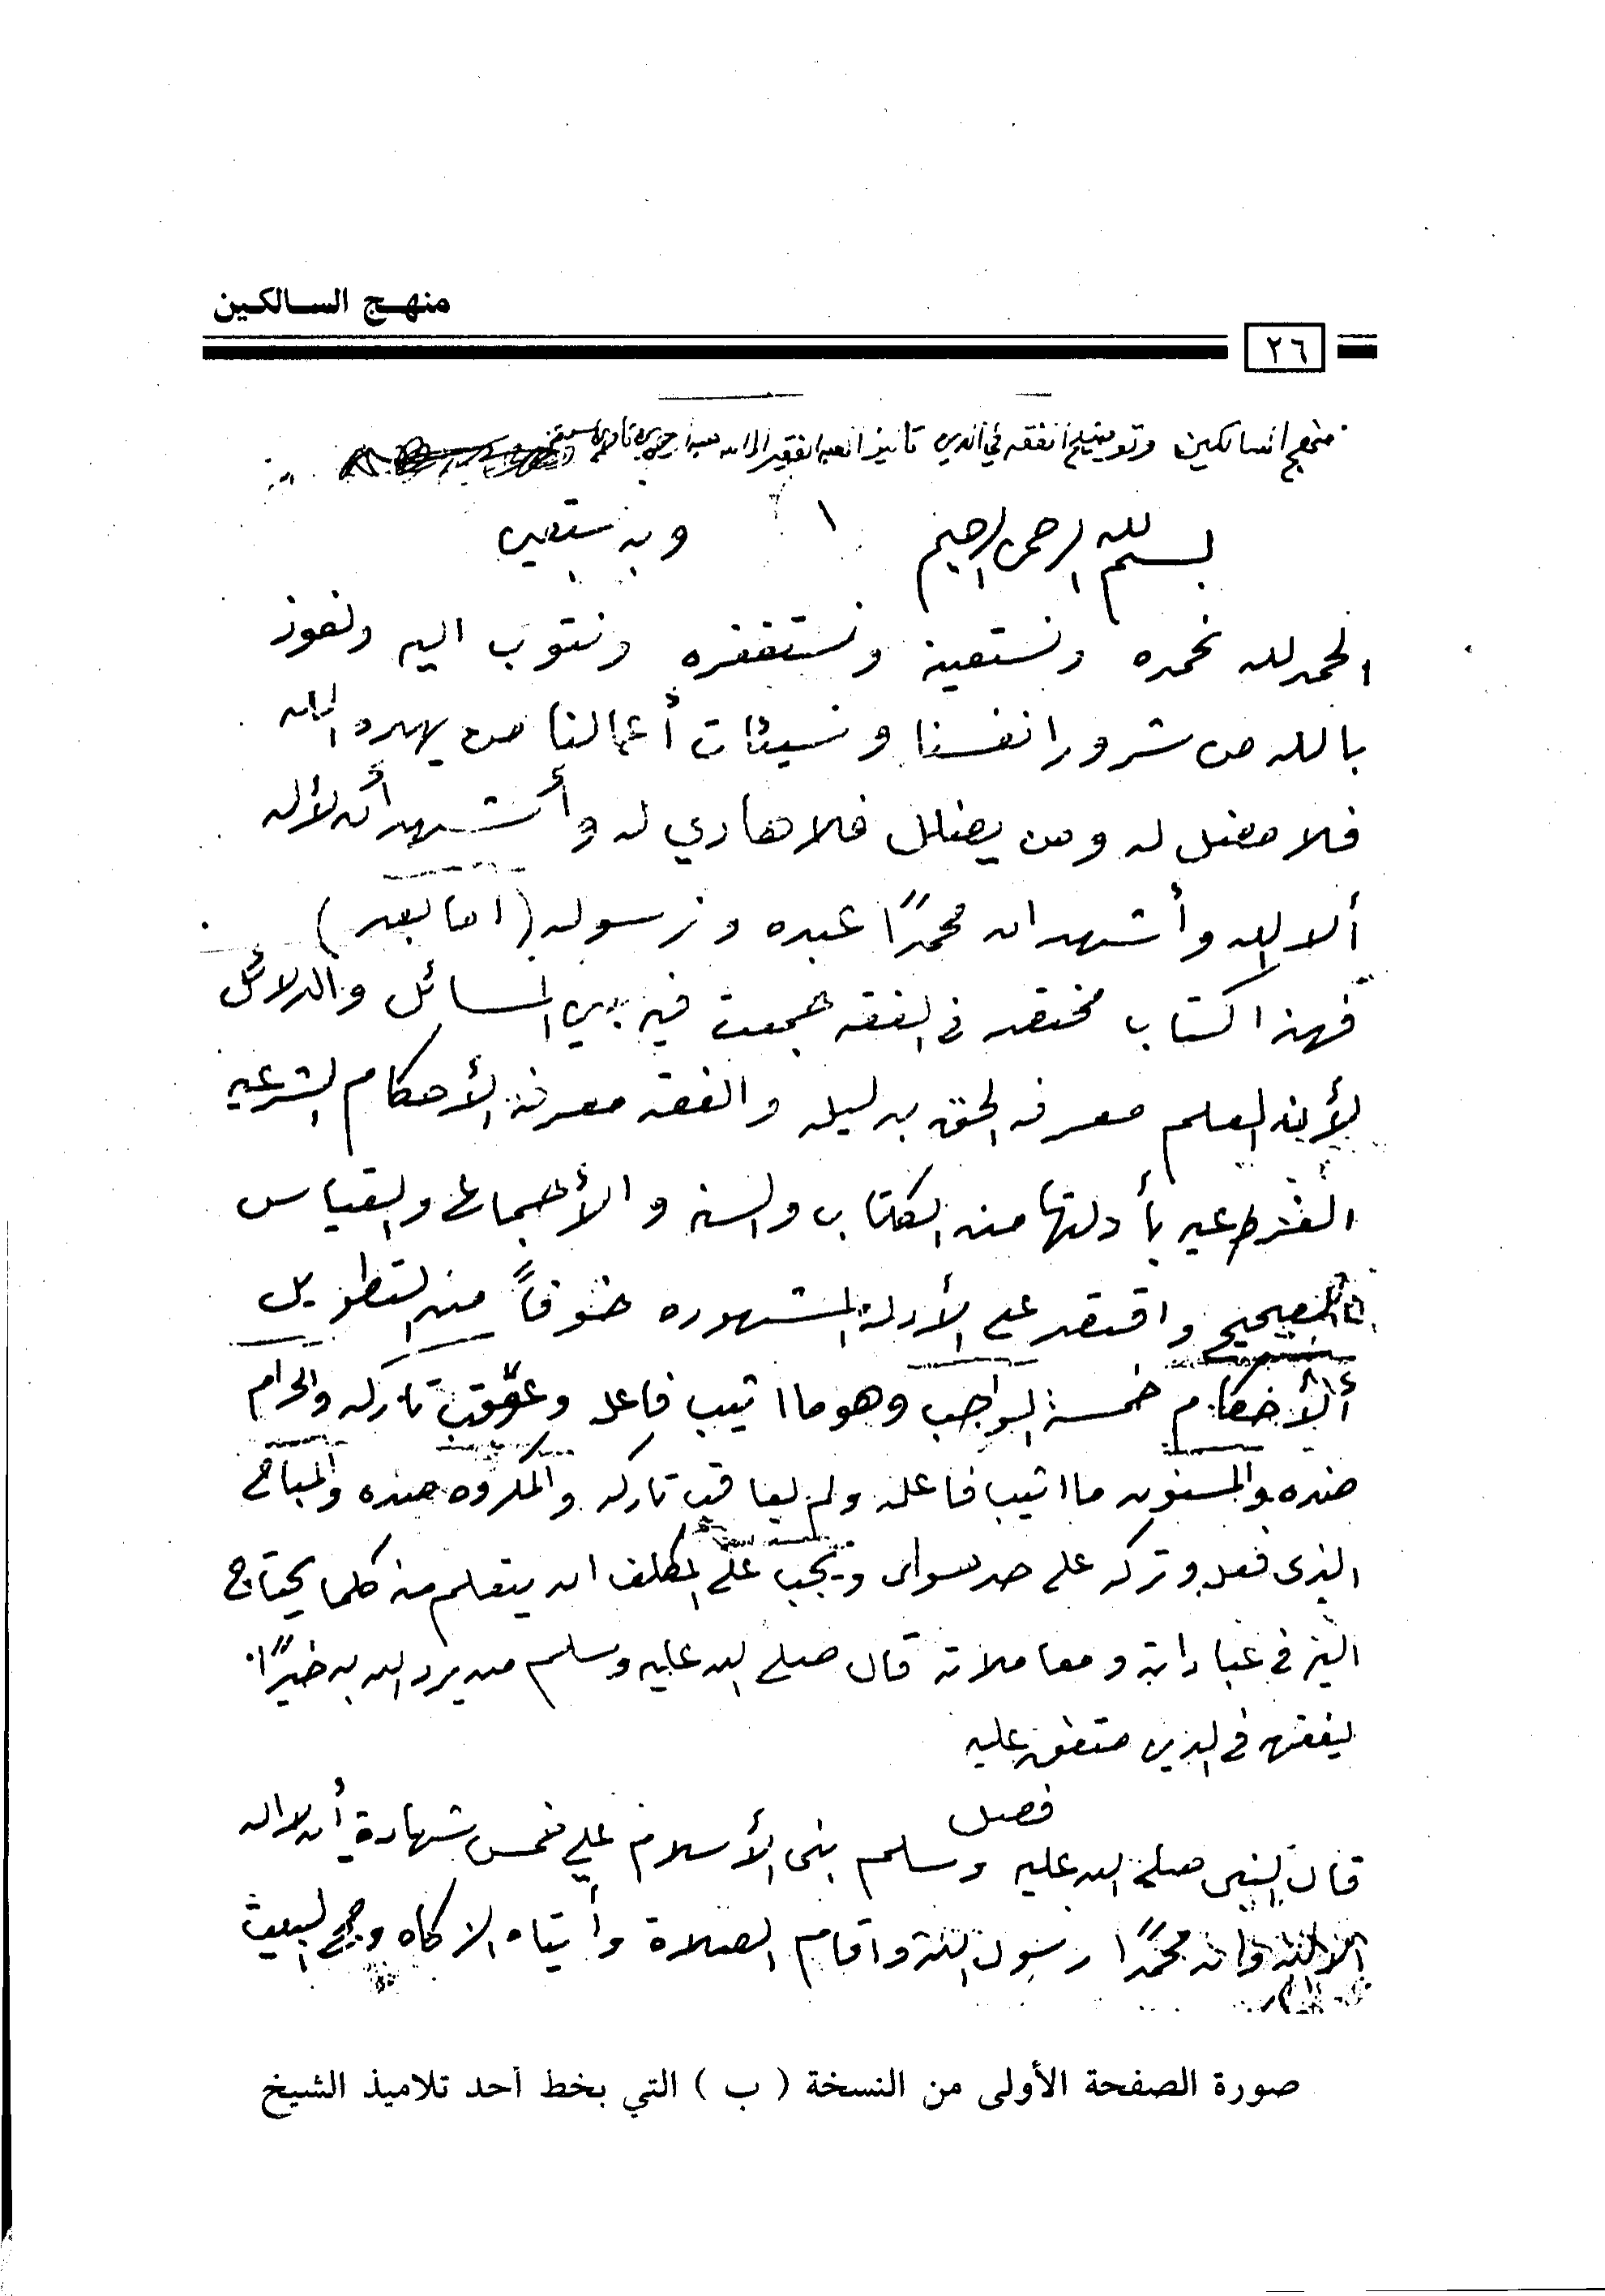 منهج السالكين
٢٦
منهج السالكين وتوضيح الفقه في الدين تأليف العبد الفقير الى الله عبد الرحمن بن ناصر السعدي
بسم الله الرحمن الرحيم وبه نستعين
الحمد لله نحمده ونستعينه ونستغفره ونتوب اليه ونعوذ
بالله من شرور انفسنا وسيئات أعمالنا من يهده الله
فلا مضل له ومن يضلل فلا هادي له وأشهد أن لا أله
ألا الله وأشهد ان محمدًا عبده ورسوله (اما بعد)
فهذا كتاب مختصر في الفقه جمعت فيه بين المسائل والدلائل
لأن العلم معرفة الحق بدليله والفقه معرفة الأحكام الشرعيه
الفرعيه بأدلتها من الكتاب والسنه والأجماع والقياس
الصحيح واقتصر على الأدلة المشهوره خوفاً من التطويل
ألأحكام خمسة الواجب وهو ما اثيب فاعله وعوقب تاركه والحرام
ضده والمسنون ما اثيب فاعله ولم يعاقب تاركه والمكروه ضده والمباح
الذى فعله وتركه على حد سواء ويجب على المكلف ان يتعلم منه كلما يحتاج
اليه في عباداته ومعاملاته قال صلى الله عليه وسلم من يرد الله به خيرًا
يفقهه في الدين متفق عليه
فصل
قال النبي صلى الله عليه وسلم بنى الأسلام على خمس شهادة أن لا اله
الا الله وان محمدًا رسول الله واقام الصلاة وأيتاء الزكاه وحج البيت
صورة الصفحة الأولى من النسخة ( ب ) التي بخط أحد تلاميذ الشيخ